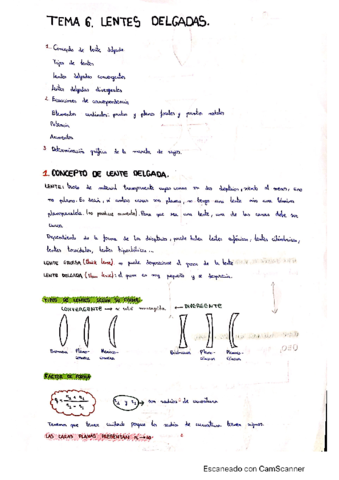 TEMA 6. LENTES DELGADAS.
1. Concepto de lente delgada
Tipos de lentes
Lentes delgadas convergentes
Lentes delgadas divergentes
2. Ecuaciones de correspondencia
Elementos cardinales: puntos y planos focales y puntos nodales
Potencia
Aumentos
3. Determinación gráfica de la marcha de rayos.
1. CONCEPTO DE LENTE DELGADA.
LENTE: trozo de material transparente cuyas caras son dos dioptrios, siendo al menos, uno
no plano. Es decir, si ambas caras son planas, no tengo una lente sino una lámina
planoparalela. (no produce aumento). Para que sea una lente, una de las caras debe ser
curva.
Dependiendo de la forma de los dioptrios, puede haber lentes esféricas, lentes cilíndricas,
lentes toroidales, lentes hiperbólicas...
LENTE GRUESA (thick lens): no puedo despreciar el grosor de la lente
LENTE DELGADA (thin lens): el grosor es muy pequeño y se desprecia.
TIPOS DE LENTES SEGÚN SU FORMA
CONVERGENTE DIVERGENTE
Biconvexa Plano- Menisco- Bicóncava Plano- Menisco-
convexa convexa cóncava cóncava
FACTOR DE FORMA
r₁ y r₂ → son radios de curvatura
Tenemos que tener cuidado porque los radios de curvatura tienen signos.
LAS CARAS PLANAS PRESENTAN r → ∞
Escaneado con CamScanner